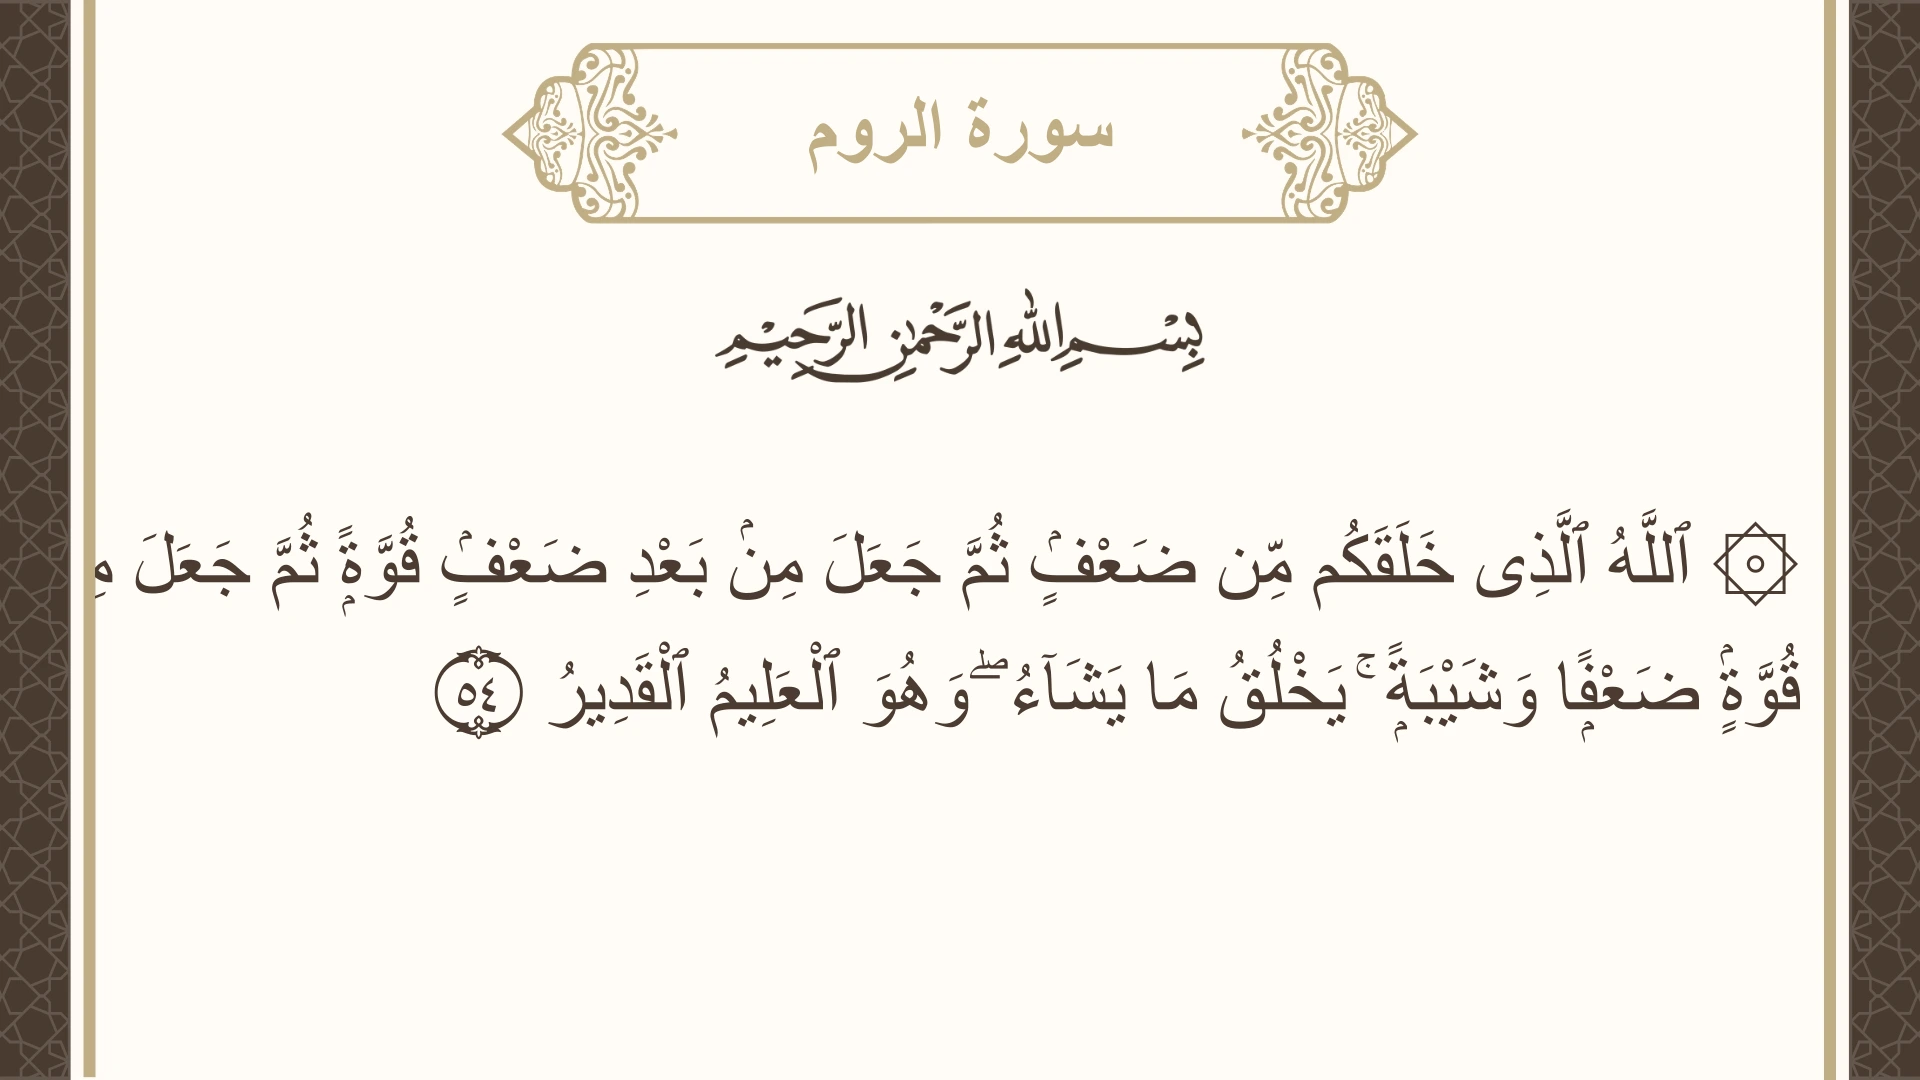 سورة الروم
بِسْمِ اللهِ الرَّحْمٰنِ الرَّحِيْمِ
۞ ٱللَّهُ ٱلَّذِى خَلَقَكُم مِّن ضَعْفٍۢ ثُمَّ جَعَلَ مِنۢ بَعْدِ ضَعْفٍۢ قُوَّةًۭ ثُمَّ جَعَلَ
قُوَّةٍۢ ضَعْفًۭا وَشَيْبَةًۭ ۚ يَخْلُقُ مَا يَشَآءُ ۖ وَهُوَ ٱلْعَلِيمُ ٱلْقَدِيرُ ٥٤